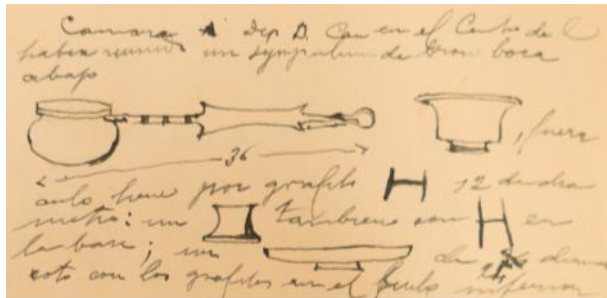 Camara A Dep D. Con en el Centro de l
habia un sympulum de bronce boca
abajo
36
, fuera
tiene por grafito H 12 de dia
metro: un tambien con H en
la base; un de 24 diame
roto con los grafitos en el inferior